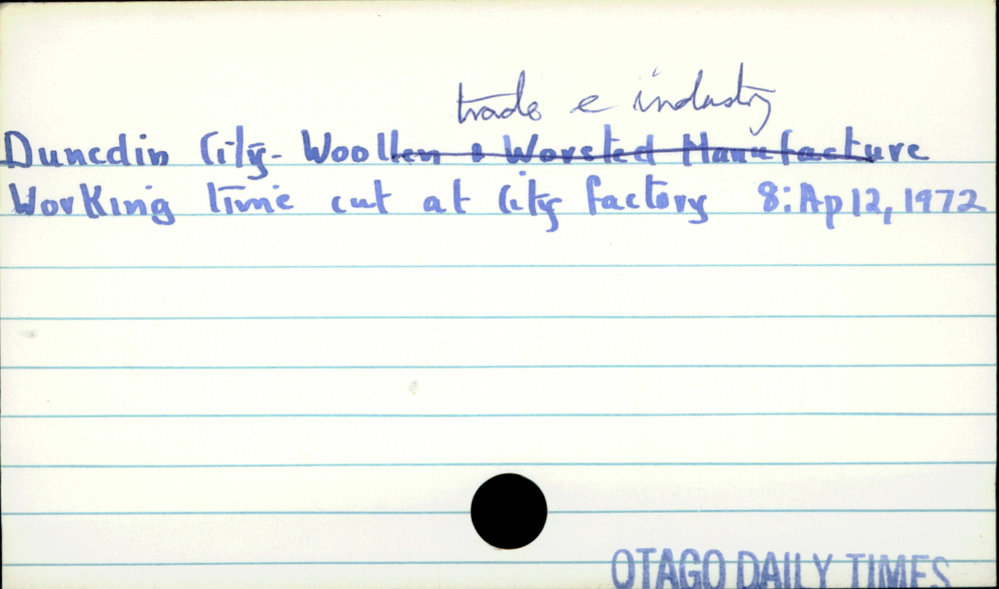 trade & industry
Dunedin City- Woollen & Worsted Manufacture
Working time cut at City factory 8:Ap12, 1972
OTAGO DAILY TIMES